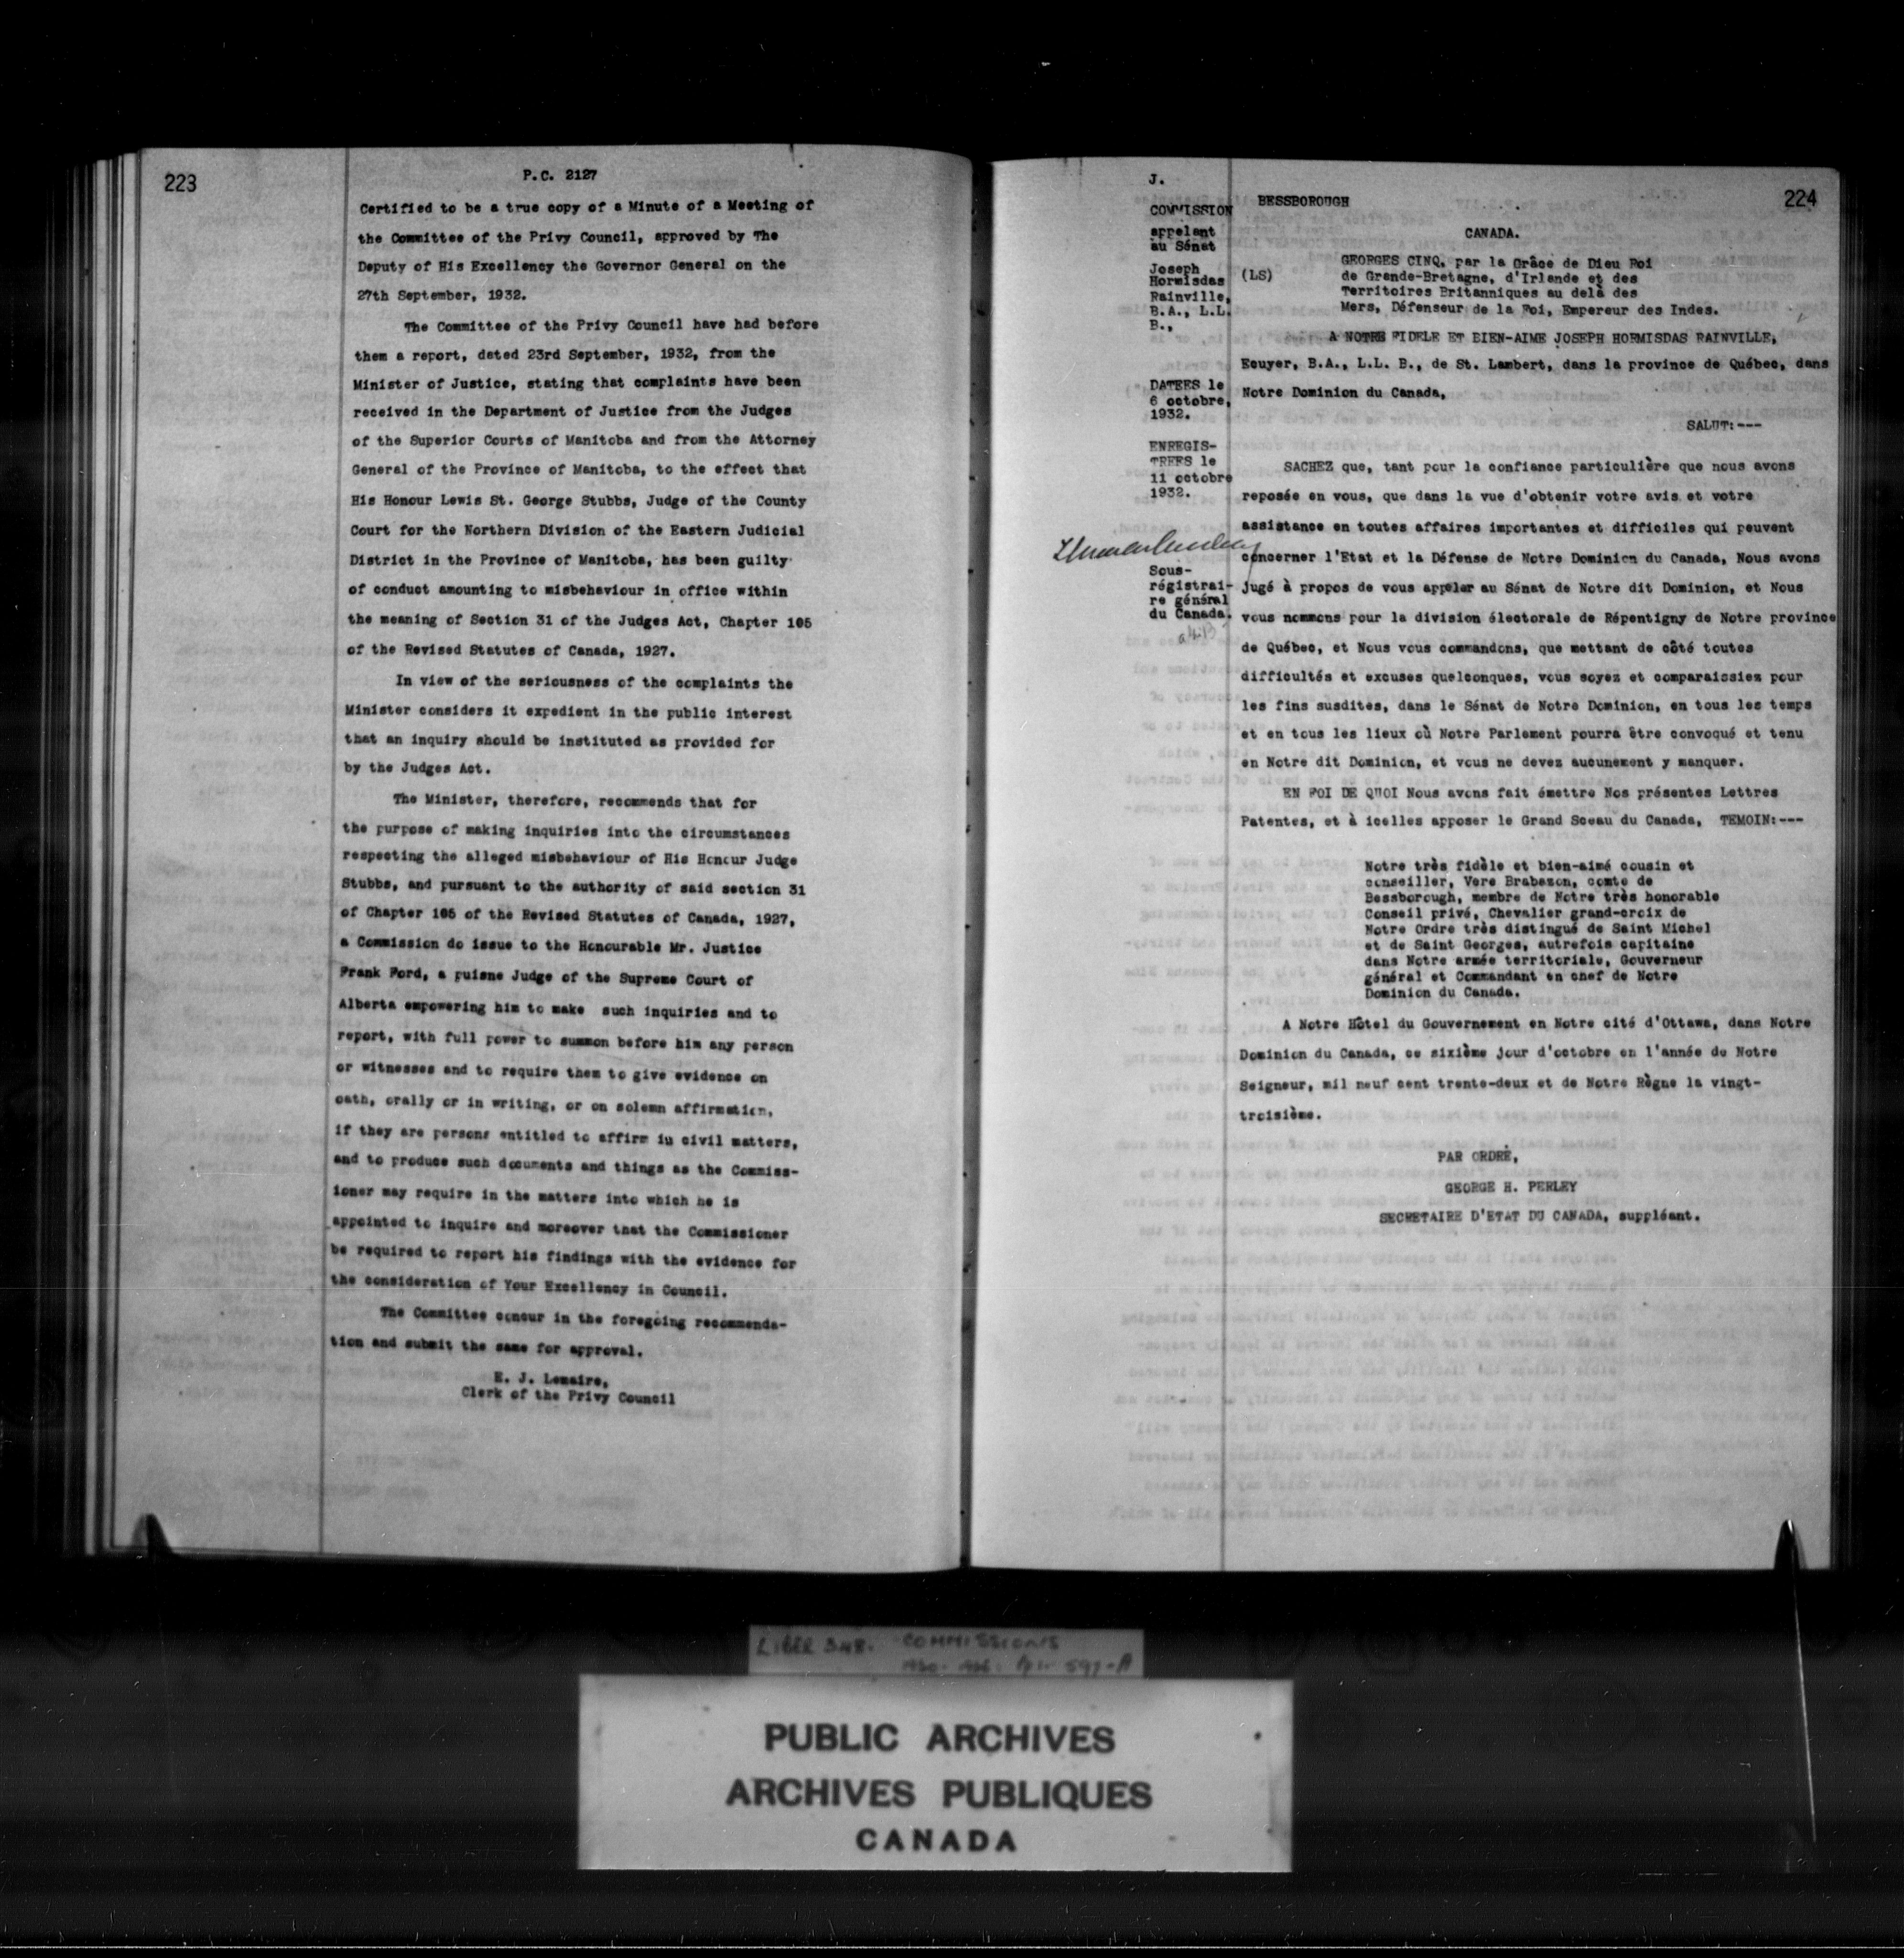 223
P.C. 2127
Certified to be a true copy of a Minute of a Meeting of
the Committee of the Privy Council, approved by The
Deputy of His Excellency the Governor General on the
27th September, 1932.
The Committee of the Privy Council have had before
them a report, dated 23rd September, 1932, from the
Minister of Justice, stating that complaints have been
received in the Department of Justice from the Judges
of the Superior Courts of Manitoba and from the Attorney
General of the Province of Manitoba, to the effect that
His Honour Lewis St. George Stubbs, Judge of the County
Court for the Northern Division of the Eastern Judicial
District in the Province of Manitoba, has been guilty
of conduct amounting to misbehaviour in office within
the meaning of Section 31 of the Judges Act, Chapter 105
of the Revised Statutes of Canada, 1927.
In view of the seriousness of the complaints the
Minister considers it expedient in the public interest
that an inquiry should be instituted as provided for
by the Judges Act.
The Minister, therefore, recommends that for
the purpose of making inquiries into the circumstances
respecting the alleged misbehaviour of His Honour Judge
Stubbs, and pursuant to the authority of said section 31
of Chapter 105 of the Revised Statutes of Canada, 1927,
a Commission do issue to the Honourable Mr. Justice
Frank Ford, a puisne Judge of the Supreme Court of
Alberta empowering him to make such inquiries and to
report, with full power to summon before him any person
or witnesses and to require them to give evidence on
oath, orally or in writing, or on solemn affirmation,
if they are persons entitled to affirm in civil matters,
and to produce such documents and things as the Commiss-
ioner may require in the matters into which he is
appointed to inquire and moreover that the Commissioner
be required to report his findings with the evidence for
the consideration of Your Excellency in Council.
The Committee concur in the foregoing recommenda-
tion and submit the same for approval.
E. J. Lemaire,
Clerk of the Privy Council
224
J.
COMMISSION
appelant
au Sénat
Joseph
Hormisdas
Rainville,
B.A., L.L.
B.,
DATEES le
6 octobre,
1932.
ENREGIS-
TREES le
11 octobre
1932.
Sous-
régistrai-
re général
du Canada.
BESSBOROUGH
CANADA.
(LS)
GEORGES CINQ, par la Grâce de Dieu Roi
de Grande-Bretagne, d'Irlande et des
Territoires Britanniques au delà des
Mers, Défenseur de la Foi, Empereur des Indes.
A NOTRE FIDELE ET BIEN-AIME JOSEPH HORMISDAS RAINVILLE,
Ecuyer, B.A., L.L. B., de St. Lambert, dans la province de Québec, dans
Notre Dominion du Canada,
SALUT:---
SACHEZ que, tant pour la confiance particulière que nous avons
reposée en vous, que dans la vue d'obtenir votre avis et votre
assistance en toutes affaires importantes et difficiles qui peuvent
concerner l'Etat et la Défense de Notre Dominion du Canada, Nous avons
jugé à propos de vous appeler au Sénat de Notre dit Dominion, et Nous
vous nommons pour la division électorale de Répentigny de Notre province
de Québec, et Nous vous commandons, que mettant de côté toutes
difficultés et excuses quelconques, vous soyez et comparaissiez pour
les fins susdites, dans le Sénat de Notre Dominion, en tous les temps
et en tous les lieux où Notre Parlement pourra être convoqué et tenu
en Notre dit Dominion, et vous ne devez aucunement y manquer.
EN FOI DE QUOI Nous avons fait émettre Nos présentes Lettres
Patentes, et à icelles apposer le Grand Sceau du Canada, TEMOIN:---
Notre très fidèle et bien-aimé cousin et
conseiller, Vere Brabazon, comte de
Bessborough, membre de Notre très honorable
Conseil privé, Chevalier grand-croix de
Notre Ordre très distingué de Saint Michel
et de Saint Georges, autrefois capitaine
dans Notre armée territoriale, Gouverneur
général et Commandant en chef de Notre
Dominion du Canada.
A Notre Hôtel du Gouvernement en Notre cité d'Ottawa, dans Notre
Dominion du Canada, ce sixième jour d'octobre en l'année de Notre
Seigneur, mil neuf cent trente-deux et de Notre Règne la vingt-
troisième.
PAR ORDRE,
GEORGE H. PERLEY
SECRETAIRE D'ETAT DU CANADA, suppléant.
LIBER 348. COMMISSIONS
PUBLIC ARCHIVES
ARCHIVES PUBLIQUES
CANADA